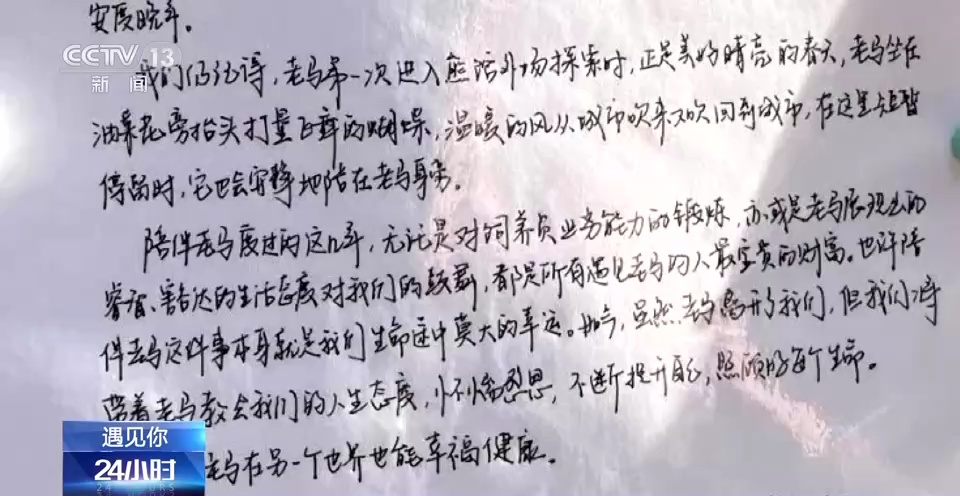 安度晚年。
CCTV 13
新闻
我们仍记得，老马第一次进入熊馆外场探索时，正是美好晴亮的春天，老马坐在
油菜花旁抬头打量飞舞的蝴蝶，温暖的风从城市吹来又吹回到城市，在这里短暂
停留时，它也会安静地陪在老马身旁。
陪伴老马度过的这几年，无论是对饲养员业务能力的锻炼，亦或是老马展现出的
睿智、豁达的生活态度对我们的鼓舞，都是所有遇见老马的人最宝贵的财富。也许陪
伴老马这件事本身就是我们生命途中莫大的幸运。如今，虽然老马离开了我们，但我们将
带着老马教会我们的人生态度，怀念思，不断提升自己，照顾好每个生命。
老马在另一个世界也能幸福健康。
遇见你
24小时
24 HOURS